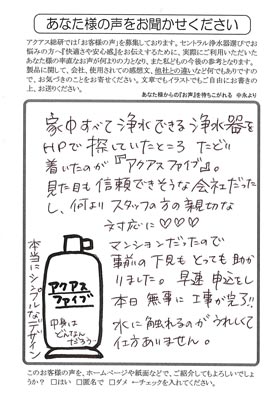 あなた様の声をお聞かせください
アクアス総研では「お客様の声」を募集しております。セントラル浄水器選びで
お悩みの方へ『快適さや安心感』をお伝えするために、実際にご利用いただいた
あなた様の率直なお声が何よりの力となり、また私どもの今後の参考となります。
製品に関して、会社、使用されての感想文、他社との違いなど何でもありますの
で、お気づきのことをお寄せください。文章でもイラストでもご自由にお書きの
上、お送りください。
あなた様からの『お声』を待ちこがれる 中永より
家中すべて浄水できる浄水器を
HPで探していたところ たどり
着いたのが『アクアスファイブ』。
見た目も信頼できそうな会社だった
し、何より スタッフの方の親切な
対応に♡♡♡
マンションだったので
事前の下見も とっても助か
りました。 早速 申込をし
本日 無事に 工事が完了!!
水に触れるのが うれしくて
仕方ありません。
本当にシンプルなデザイン
アクアス
ファイブ
中身は
どんな
だろう~
このお客様の声を、ホームページや紙面などで、ご紹介してもよろしいでしょ
うか? □はい □匿名で □ダメ ←チェックを入れてください。